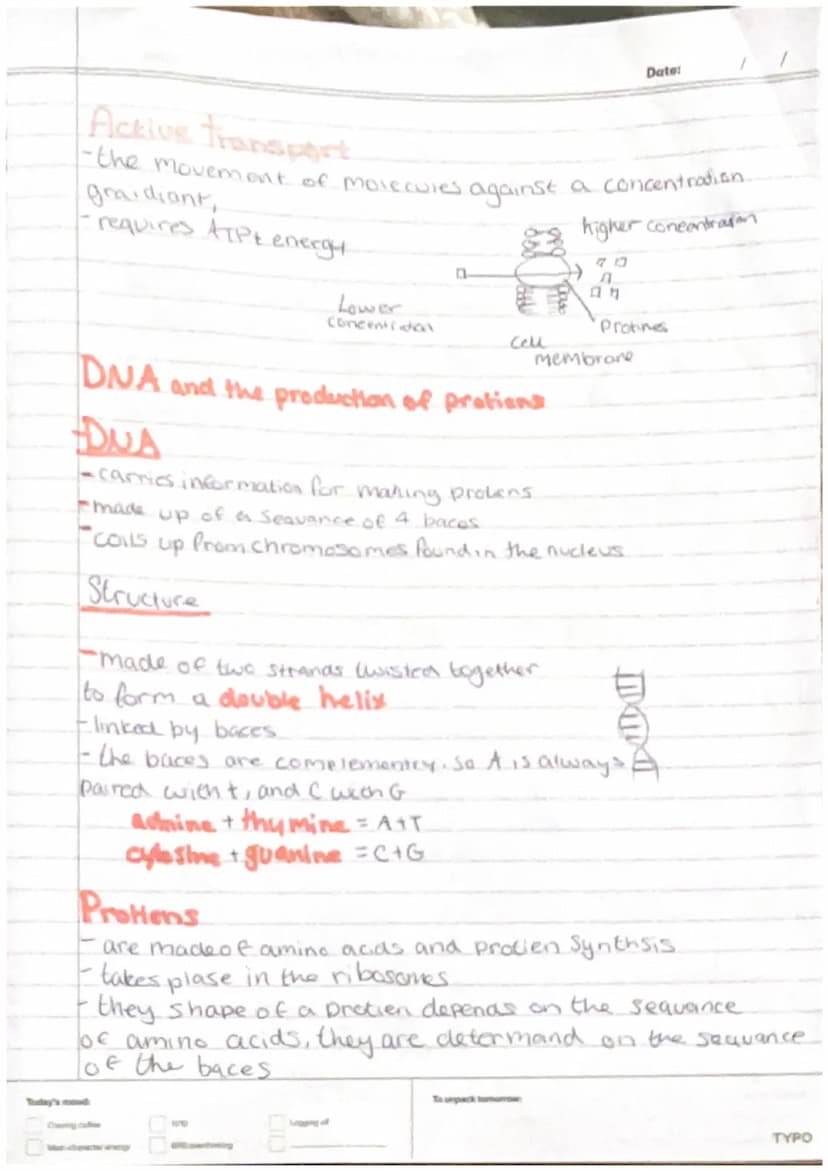 Date: / /
Active transport
-the movement of molecules against a concentration
graidiant,
- requires ATP & energy
higher concentration
Lower
Protines
cell
membrane
DNA and the production of protiens
DNA
- carries information for making protens
- made up of a seqvance of 4 baces
- coils up from chromosomes found in the nucleus
Structure
- made of two strands twisted together
to form a double helix
- linked by baces
- the baces are complementry. so A is always
paired with t, and C with G
adnine + thymine = A+T
cytosine + guanine = C+G
Protiens
- are made of amino acids and protien Synthsis
- takes plase in the ribosomes
- they shape of a protien depends on the seqvance
of amino acids, they are determand on the seqvance
of the baces
Today's mood:
To unpack tomorrow:
Craving coffee
Logging off
Main-character energy
TYPO